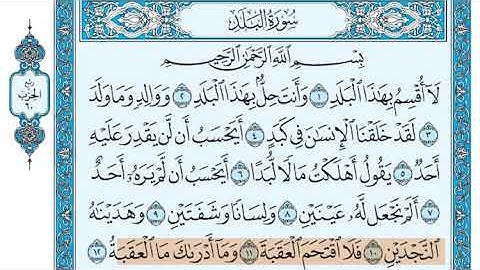 سُورَةُ البَلَدِ
بِسْمِ اللَّهِ الرَّحْمَٰنِ الرَّحِيمِ
لَا أُقْسِمُ بِهَٰذَا الْبَلَدِ ١ وَأَنتَ حِلٌّ بِهَٰذَا الْبَلَدِ ٢ وَوَالِدٍ وَمَا وَلَدَ
٣ لَقَدْ خَلَقْنَا الْإِنسَانَ فِي كَبَدٍ ٤ أَيَحْسَبُ أَن لَّن يَقْدِرَ عَلَيْهِ
أَحَدٌ ٥ يَقُولُ أَهْلَكْتُ مَالًا لُّبَدًا ٦ أَيَحْسَبُ أَن لَّمْ يَرَهُ أَحَدٌ
٧ أَلَمْ نَجْعَل لَّهُ عَيْنَيْنِ ٨ وَلِسَانًا وَشَفَتَيْنِ ٩ وَهَدَيْنَاهُ
النَّجْدَيْنِ ١٠ فَلَا اقْتَحَمَ الْعَقَبَةَ ١١ وَمَا أَدْرَاكَ مَا الْعَقَبَةُ ١٢
ربع
الحزب
٦٠